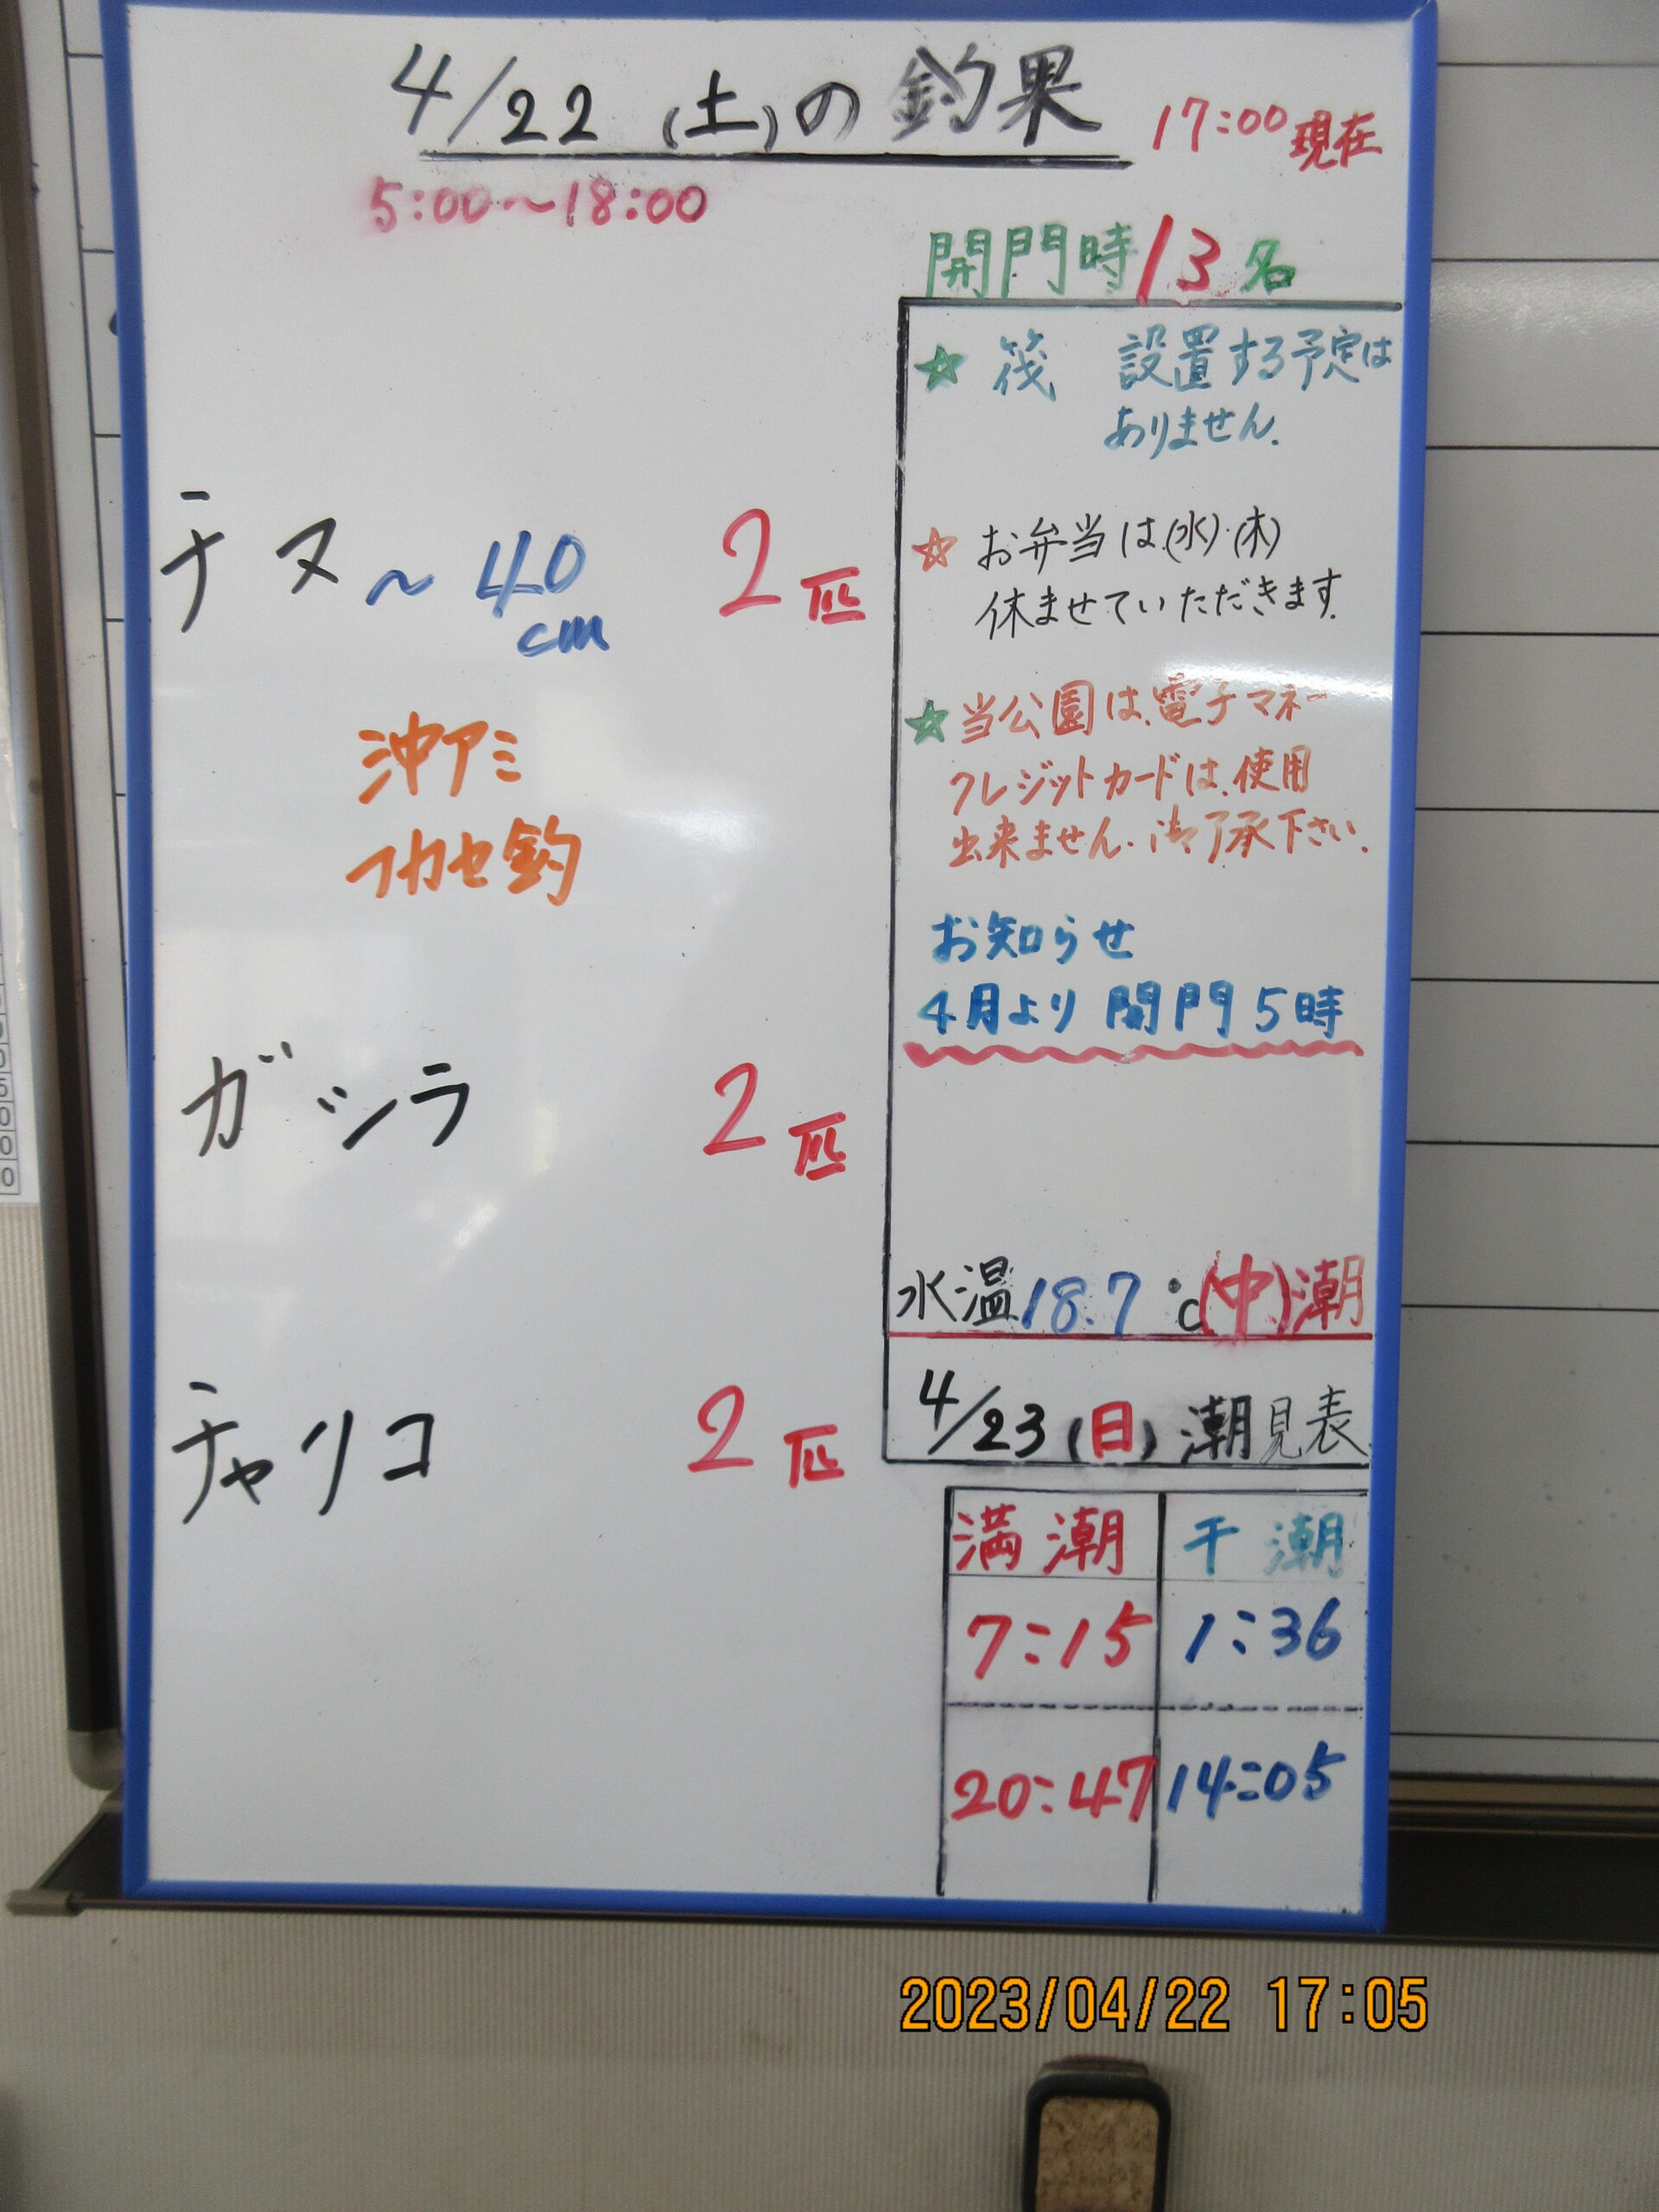 4/22(土)の釣果 17:00現在
5:00~18:00
開門時13名
☆ 筏 設置する予定は
ありません.
☆ お弁当は(水)・(木)
休ませていただきます.
☆ 当公園は、電子マネー
クレジットカードは、使用
出来ません. 御了承下さい.
お知らせ
4月より 開門5時
チヌ ~40cm 2匹
沖アミ
フカセ釣
ガシラ 2匹
チャリコ 2匹
水温18.7℃(中)潮
4/23(日)潮見表
満潮 干潮
7:15 1:36
20:47 14:05
2023/04/22 17:05